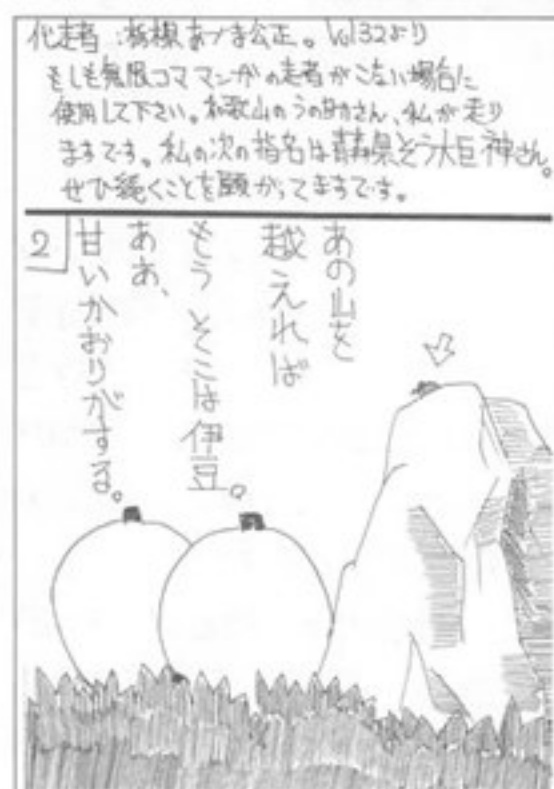 代走者:板橋あづま公正。Vol32より
もしも無限コママンガの走者がこない場合に
使用して下さい。和歌山のうのさん、私が走り
ますです。私の次の指名は青森県ぞう大巨神さん。
ぜひ継ぐことを願がってますです。
2
あの山を
越えれば
もう そこは伊豆。
ああ、
甘いかおりがする。